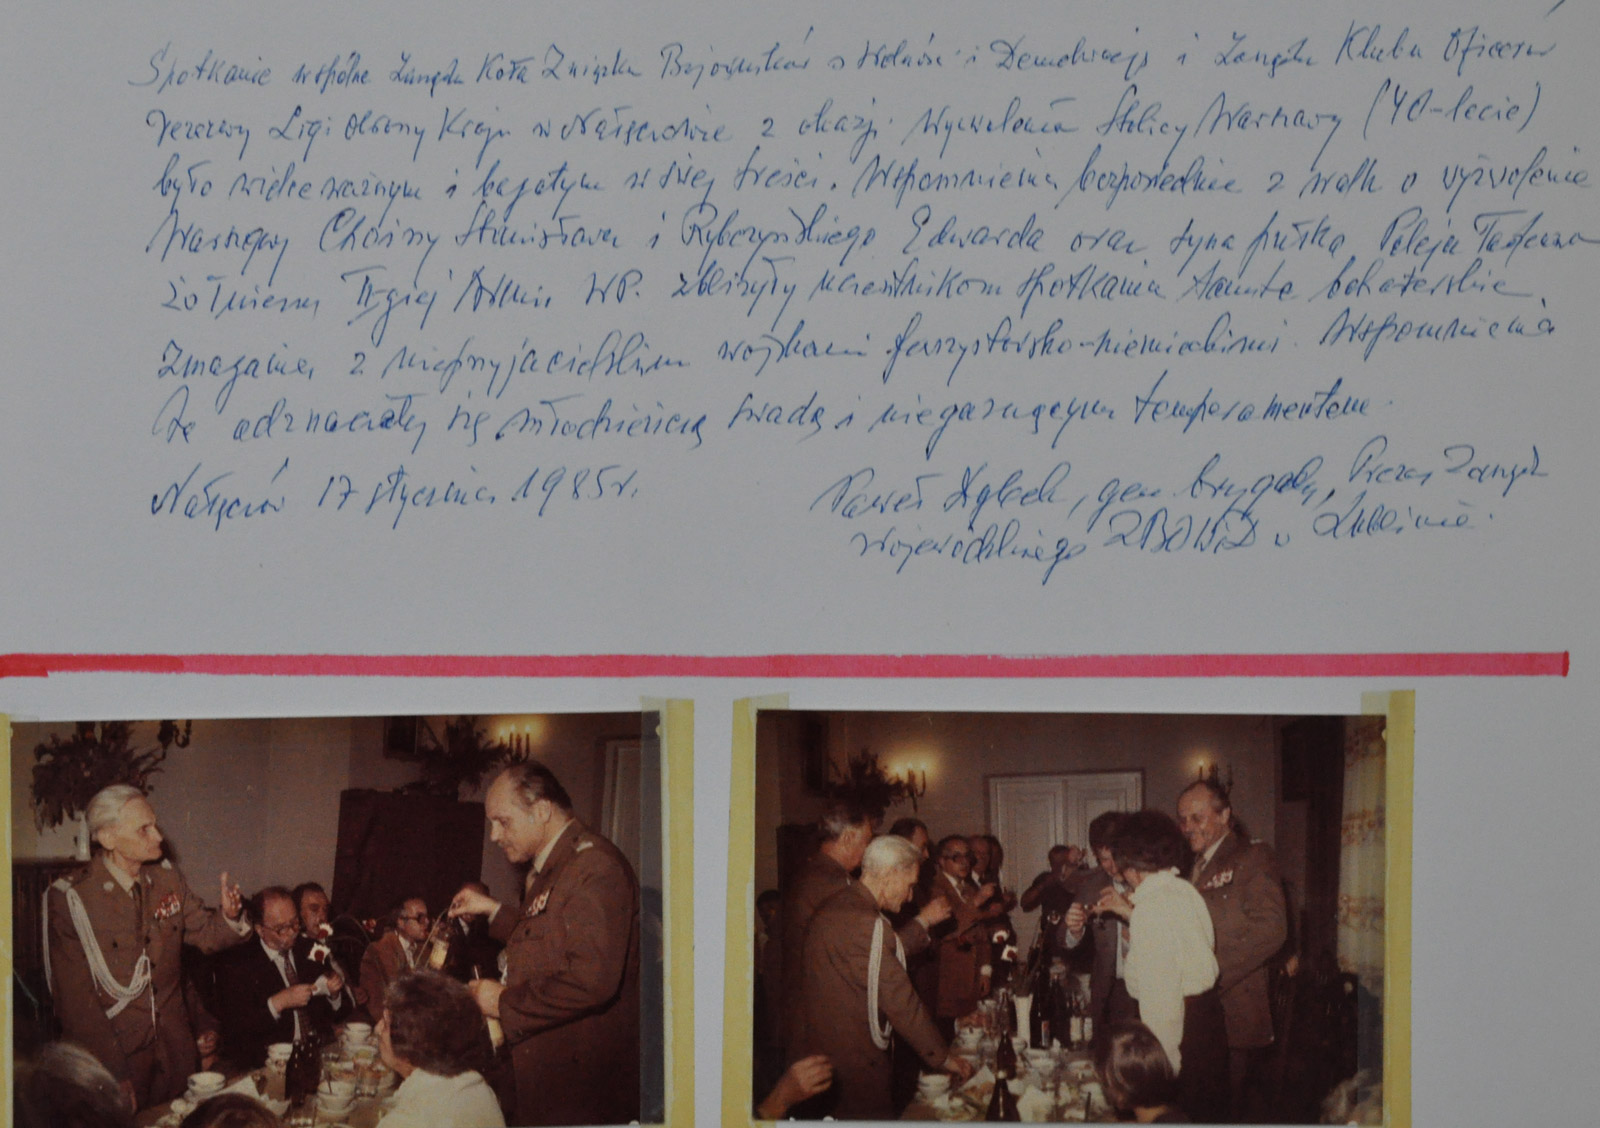 Spotkanie wspólne Zarządu Koła Związku Bojowników o Wolność i Demokrację i Zarządu Klubu Oficerów
rezerwy Ligi Obrony Kraju w Nałęczowie z okazji Wyzwolenia Stolicy Warszawy (40-lecie)
było wielce ważnym i bogatym w swej treści. Wspomnienia bezpośrednie z walk o wyzwolenie
Warszawy Choiny Stanisława i Rybczyńskiego Edwarda oraz syna pułku Tadeusza
żołnierzy II-giej Armii WP. zbliżyły uczestnikom spotkania tamte bohaterskie
zmagania z nieprzyjacielskim wojskami faszystowsko-niemieckimi. Wspomnienia
te odznaczały się młodzieńczą swadą i niegasnącym temperamentem.
Nałęczów 17 stycznia 1985 r.
Paweł gen brygady, Prezes Zarządu
Wojewódzkiego ZBOWiD w Lublinie.